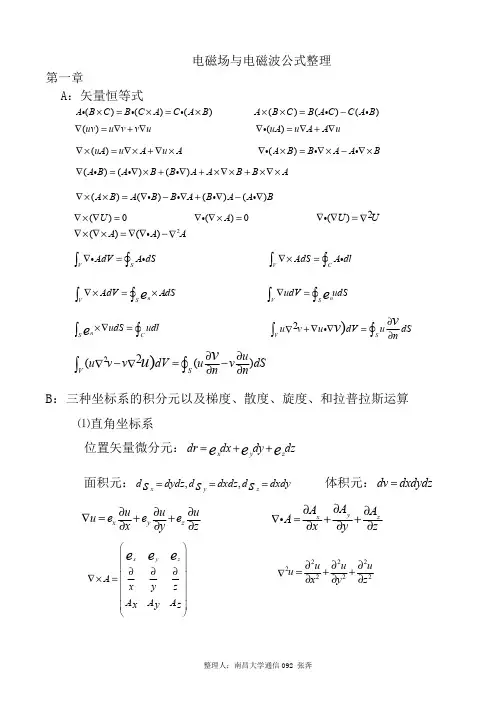 电磁场与电磁波公式整理
第一章
A：矢量恒等式
A•(B×C)=B•(C×A)=C•(A×B)　A×(B×C)=B(A•C)−C(A•B)
∇(uv)=u∇v+v∇u　∇•(uA)=u∇A+A∇u
∇×(uA)=u∇×A+∇u×A　∇•(A×B)=B•∇×A−A•∇×B
∇(A•B)=(A•∇)×B+(B•∇)A+A×∇×B+B×∇×A
∇×(A×B)=A(∇•B)−B•∇A+(B•∇)A−(A•∇)B
∇×(∇U)=0　∇•(∇×A)=0　∇•(∇U)=∇²U
∇×(∇×A)=∇(∇•A)−∇²A
∫_V ∇•AdV=∮_S A•dS　∫_V ∇×AdS=∮_C A•dl
∫_V ∇×AdV=∮_S e_n×AdS　∫_V ∇udV=∮_S e_n udS
∫_S e_n×∇udS=∮_C udl　∫_V u∇²v+∇u•∇v)dV=∮_S u ∂v/∂n dS
∫_V (u∇²v−v∇²u)dV=∮_S (u ∂v/∂n−v ∂u/∂n)dS
B：三种坐标系的积分元以及梯度、散度、旋度、和拉普拉斯运算
⑴直角坐标系
位置矢量微分元：dr=e_x dx+e_y dy+e_z dz
面积元：dS_x=dydz,dS_y=dxdz,dS_z=dxdy　体积元：dv=dxdydz
∇u=e_x ∂u/∂x+e_y ∂u/∂y+e_z ∂u/∂z　∇•A=∂A_x/∂x+∂A_y/∂y+∂A_z/∂z
∇×A=(e_x e_y e_z; ∂/∂x ∂/∂y ∂/∂z; Ax Ay Az)　∇²u=∂²u/∂x²+∂²u/∂y²+∂²u/∂z²